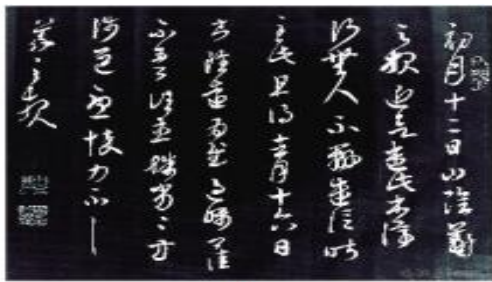 初月十二日山陰羲
之報近欲遣此書停
行無人不辦遣信昨
至此且得去月十六日
書雖遠為慰過囑卿佳
不吾諸患殊劣殊劣方
涉道憂悴力不具
羲之報